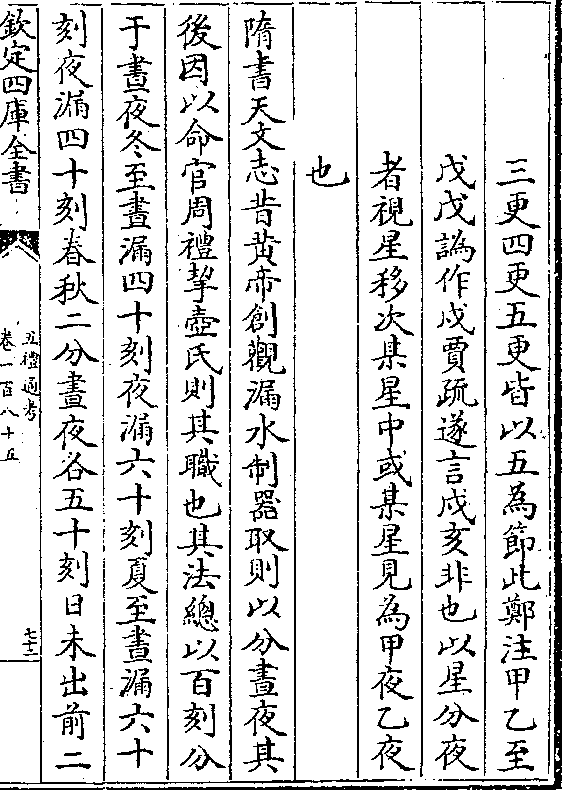 三更四更五更皆以五為節此鄭注甲乙至
戊戊譌作戍賈疏遂言戍亥非也以星分夜
者視星移次某星中或某星見為甲夜乙夜
也
隋書天文志昔黄帝創觀漏水制器取則以分晝夜其
後因以命官周禮挈壺氏則其職也其法總以百刻分
于晝夜冬至晝漏四十刻夜漏六十刻夏至晝漏六十
刻夜漏四十刻春秋二分晝夜各五十刻日未出前二
欽定四庫全書
五禮通考
卷一百八十五
七十二